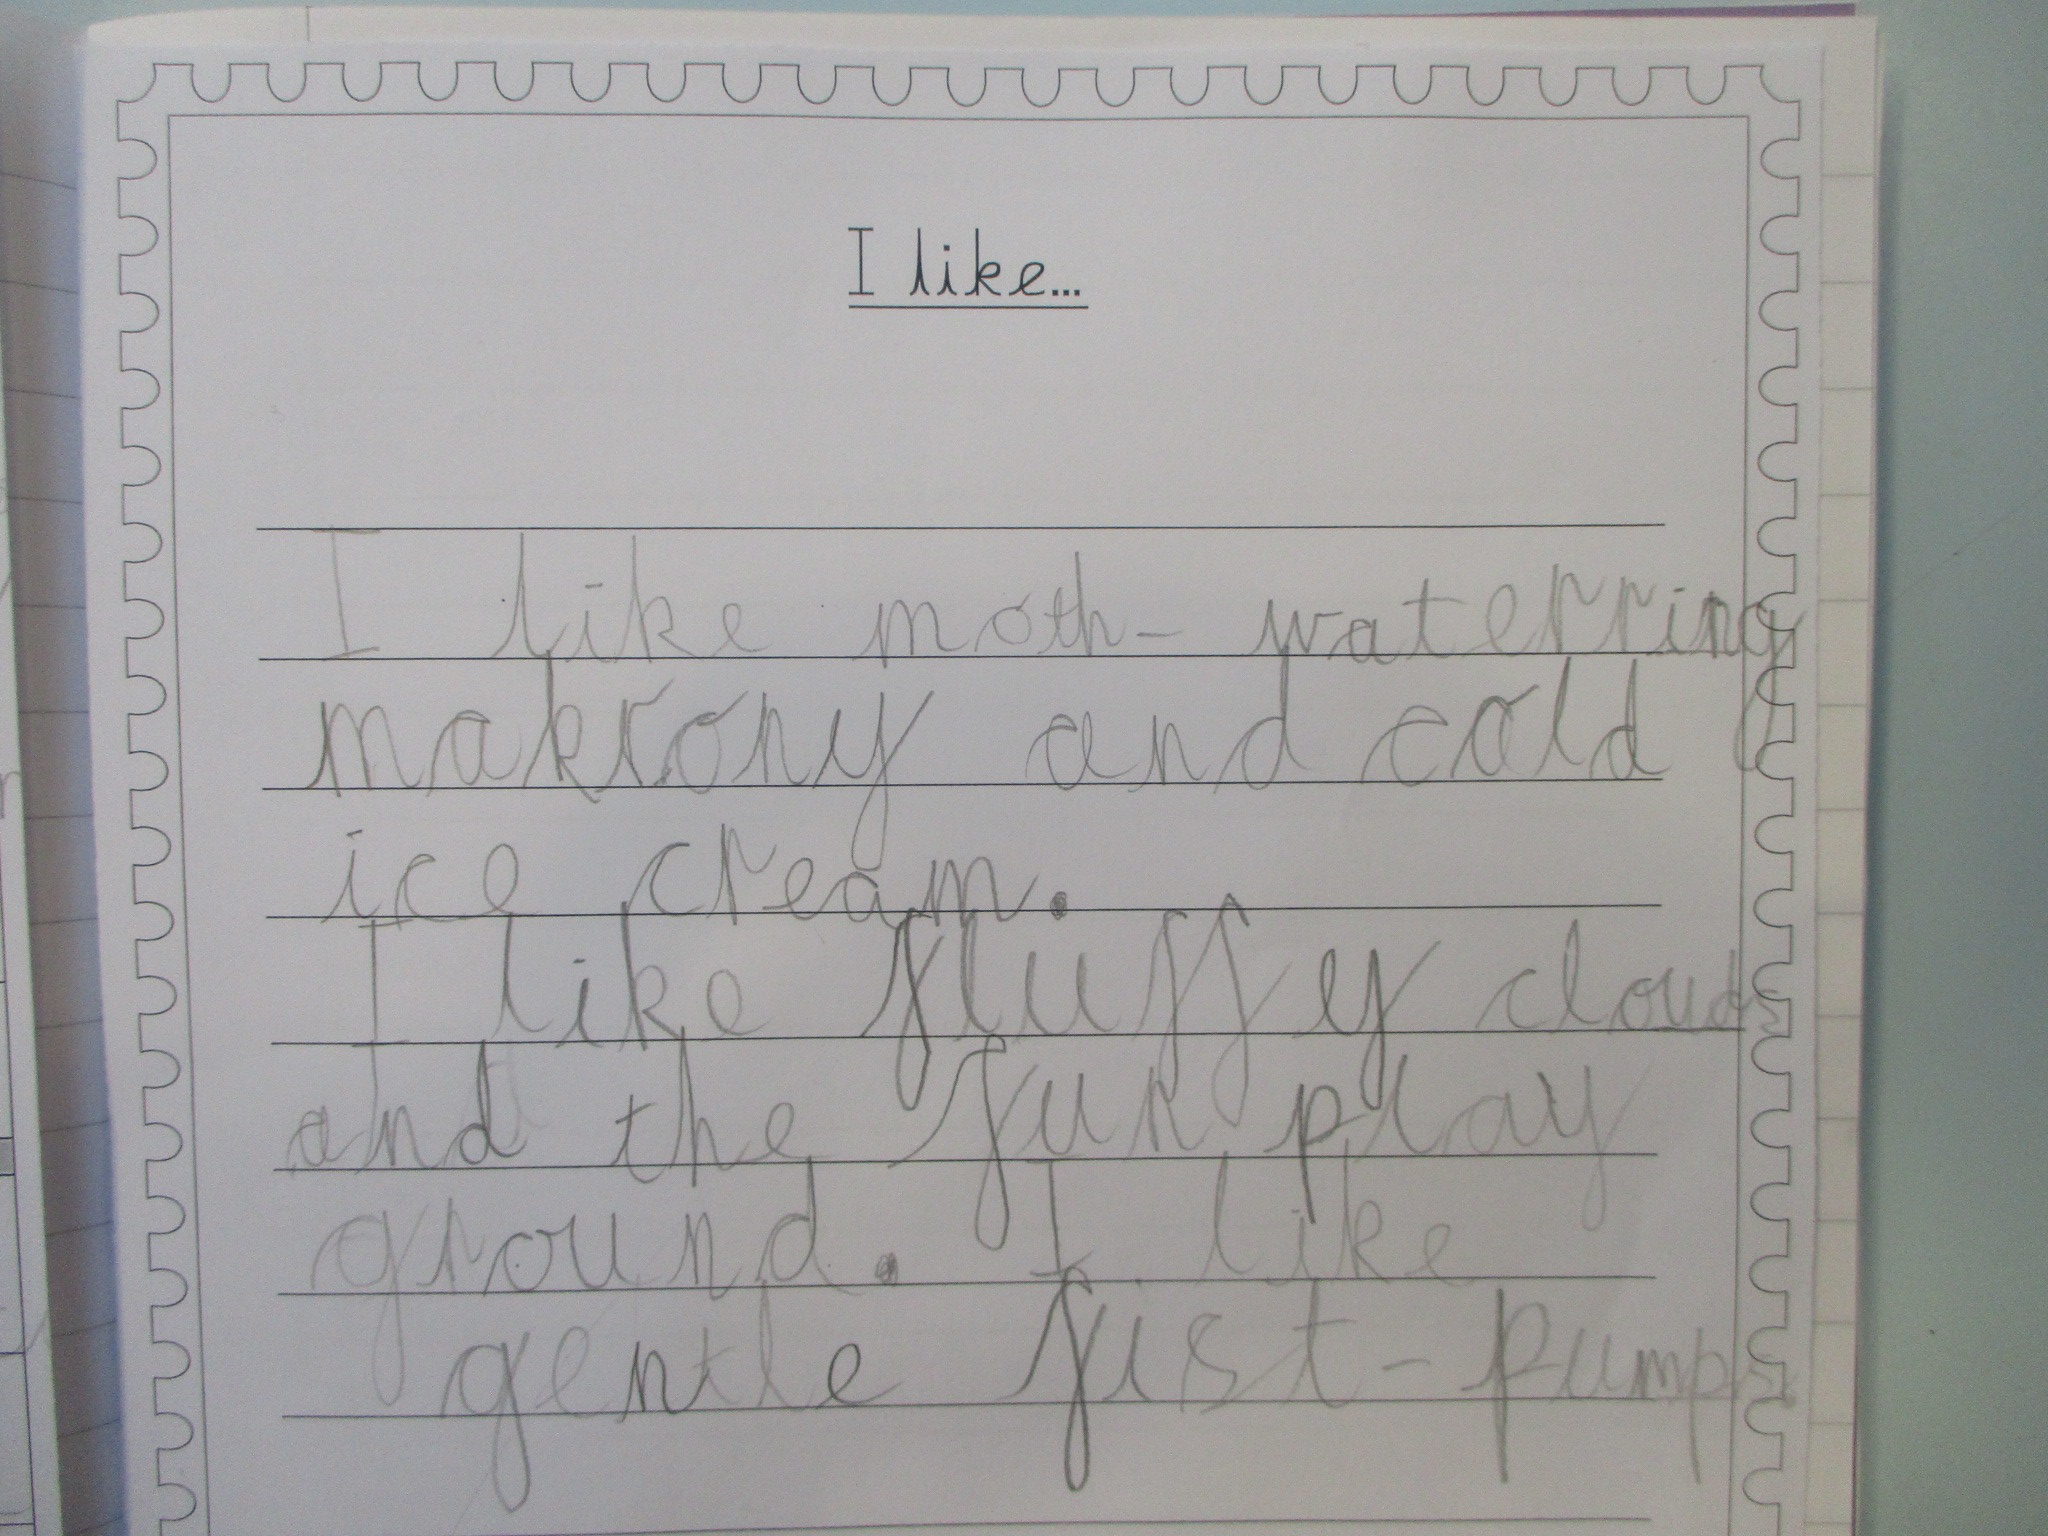 I like...
I like moth-waterring
makrony and cold
ice cream.
I like fluffy clouds
and the fun play
ground. I like
gentle fist-pumps